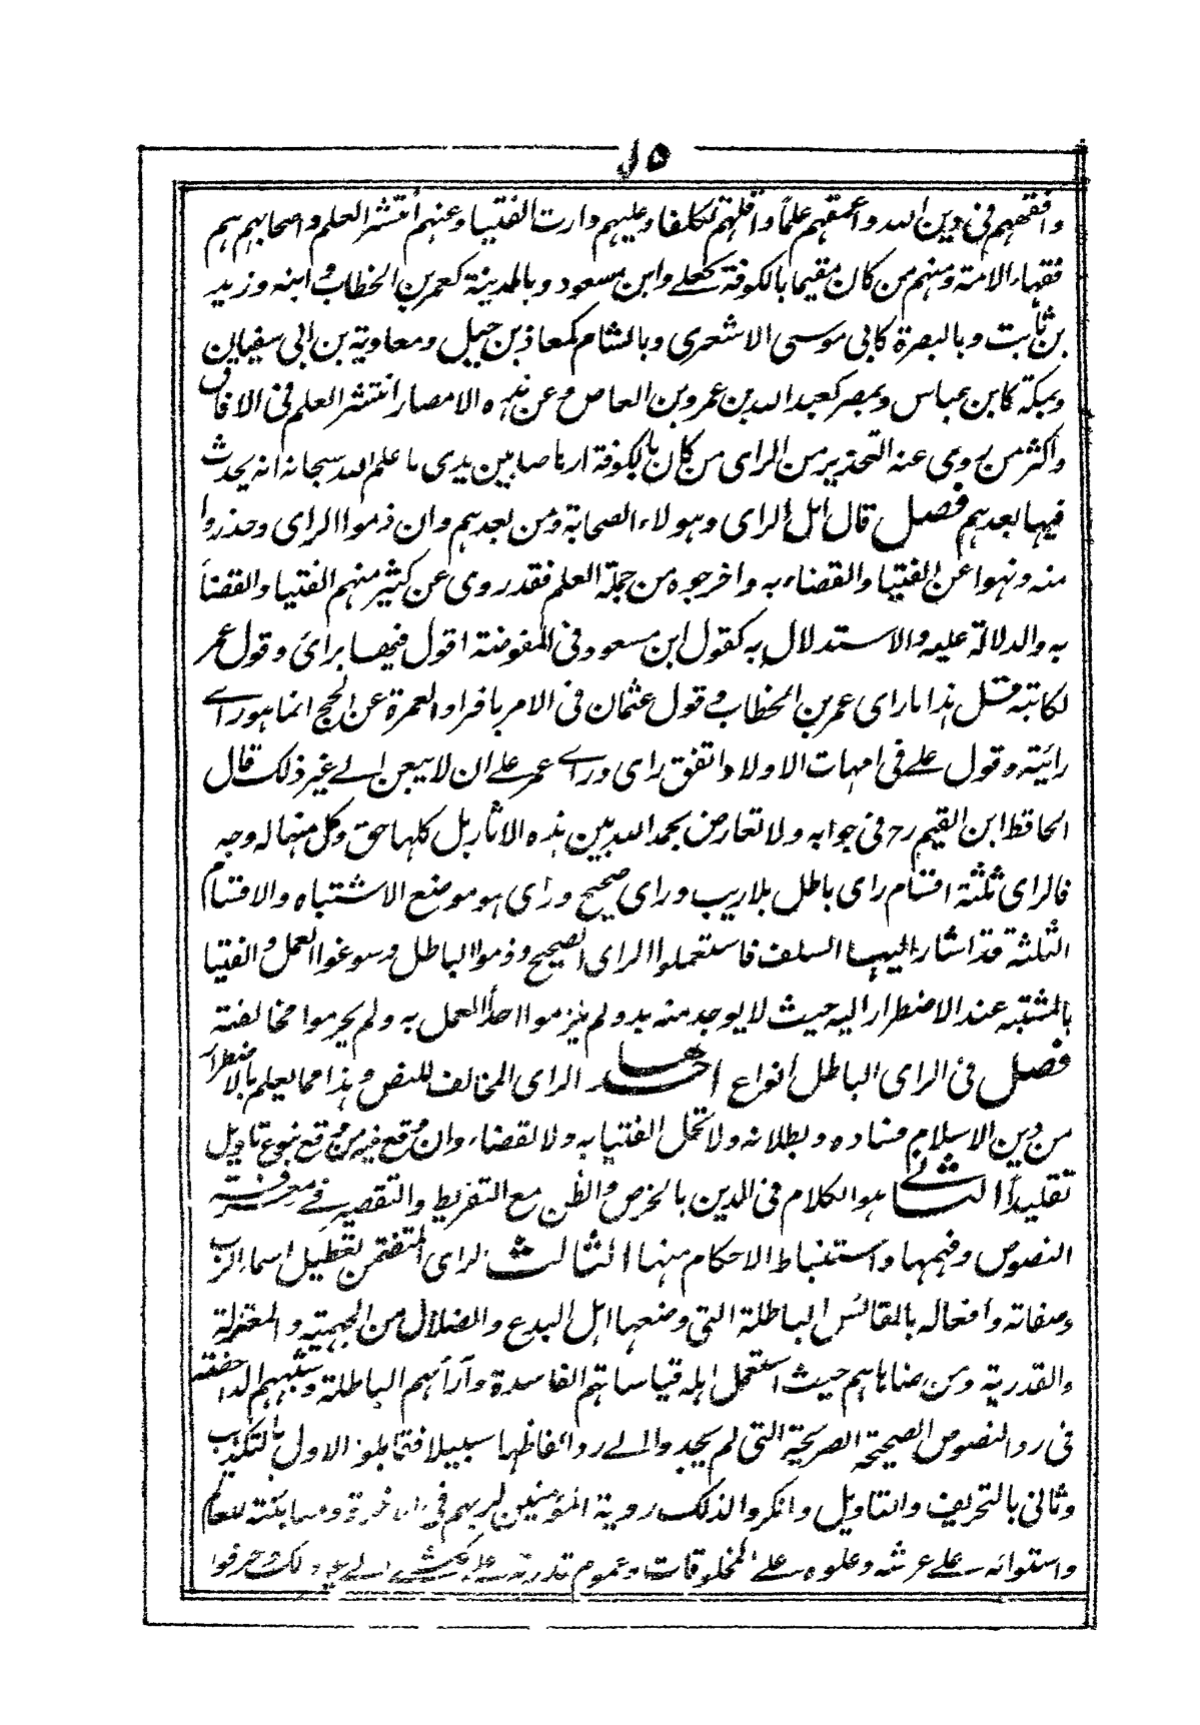 ١٥
وافقههم فى دين الله واعمقهم علماً واقلهم تكلفا وعليهم دارت الفتيا وعنهم انتشر العلم واصحابهم هم
فقهاء الامة ومنهم من كان مقيما بالكوفة كعلے وابن مسعود وبالمدينة كعمر بن الخطاب وابنه وزيد
بن ثابت وبالبصرة كابى موسى الاشعرى وبالشام كمعاذ بن جبل ومعاوية بن ابى سفيان
وبمكة كابن عباس وبمصر كعبد الله بن عمرو بن العاص وعن هذه الامصار انتشر العلم فى الافاق
واكثر من روى عنه التحذير من الراى من كان بالكوفة ارهاصا بين يدى ما علم الله سبحانه انه يحدث
فيها بعدهم فصل قال اهل الراى وهولاء الصحابة ومن بعدهم وان ذموا الراى وحذروا
منه ونهوا عن الفتيا والقضاء به واخرجوه من جملة العلم فقد روى عن كثير منهم الفتيا والقضأ
به والدلالة عليه والاستدلال به كقول ابن مسعود فى المفوضة اقول فيها برائ وقول عمر
لكاتبه قل هذا ما راى عمر بن الخطاب وقول عثمان فى الامر بافراد العمرة عن الحج انما هو راے
رايته وقول علے فى امهات الاولاد اتفق راى وراے عمر علے ان لا يبعن الے غير ذلك قال
الحافظ ابن القيم رح فى جوابه ولا تعارض بحمد الله بين هذه الاثار بل كلها حق وكل منها له وجه
فالراى ثلثة اقسام راى باطل بلا ريب وراى صحيح وراى هو موضع الاشتباه والاقسام
الثلثة قد اشار اليها السلف فاستعملوا الراى الصحيح وذموا الباطل وسوغوا العمل والفتيا
بالمشتبه عند الاضطرار اليه حيث لا يوجد منه بد ولم يلزموا احداً العمل به ولم يحرموا مخالفته
فصل فى الراى الباطل انواع احدها الراى المخالف للنص وهذا مما يعلم بالاضطرار
من دين الاسلام فساده وبطلانه ولا تحل الفتيا به ولا القضاء وان وقع فيه من وقع بنوع تاويل
تقليداً الثانے هو الكلام فى الدين بالخرص والظن مع التفريط والتقصير فے معرفته
النصوص وفهمها واستنباط الاحكام منها الثالث الراى المتضمن تعطيل اسماء الرب
وصفاته وافعاله بالمقائس الباطلة التى وضعها اهل البدع والضلال من الجهمية والمعتزلة
والقدرية ومن ضاهاهم حيث استعمل اهله قياساتهم الفاسدة وآرأهم الباطلة وشبههم الداحضة
فى رد النصوص الصحيحة الصريحة التى لم يجدوا الے رد الفاظها سبيلا فقابلوا الاول بالتكذيب
وثانى بالتحريف والتاويل وانكروا لذلك روية المؤمنين لربهم فى الاخرة ومباينته للعالم
واستوائه علے عرشه وعلوه علے المخلوقات وعموم قدرته علے كل شے وحرفوا